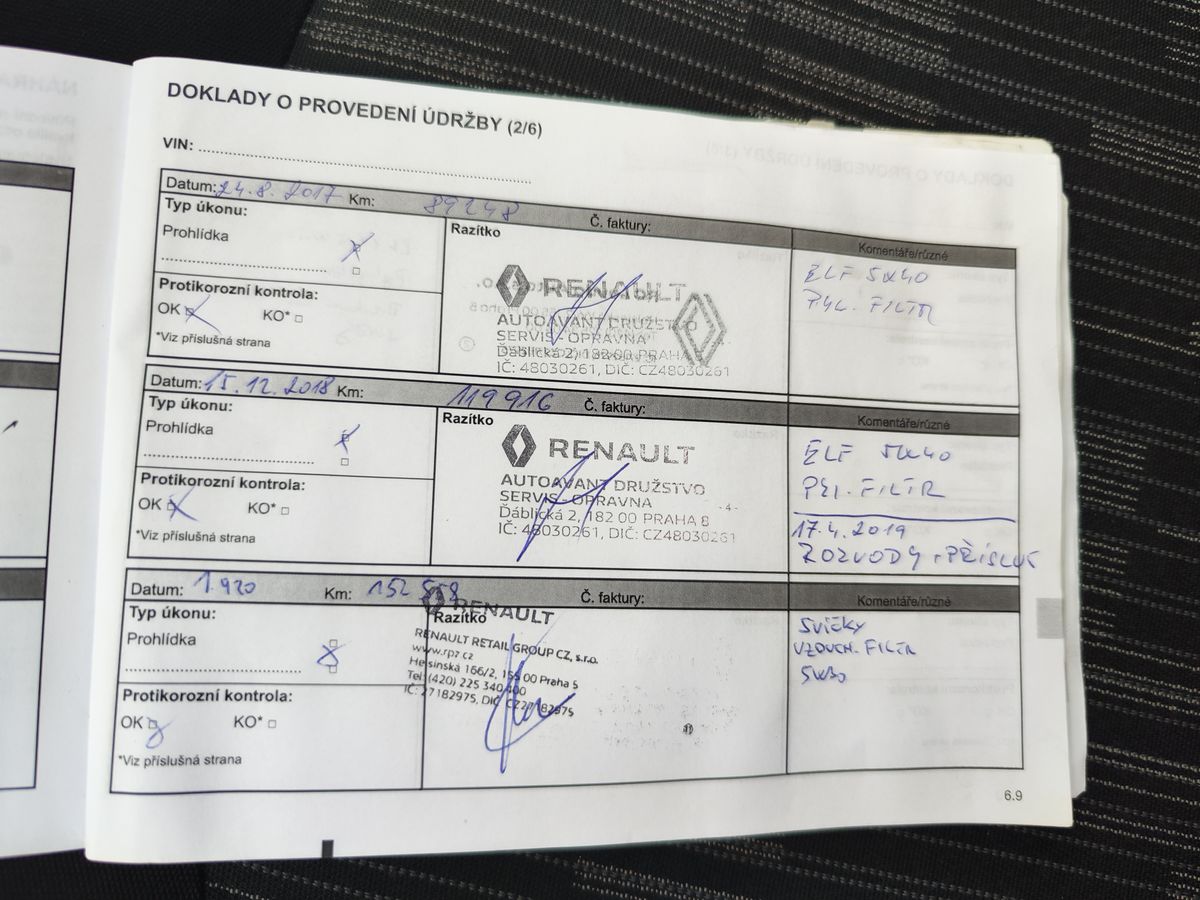 DOKLADY O PROVEDENÍ ÚDRŽBY (2/6)
VIN:
Datum: 24.8.2017 Km: 89248 Č. faktury:
Typ úkonu:
Prohlídka
Protikorozní kontrola:
OK KO*
*Viz příslušná strana
Razítko
RENAULT
AUTOAVANT DRUŽSTVO
SERVIS - OPRAVNA
Ďáblická 2, 182 00 PRAHA
IČ: 48030261, DIČ: CZ48030261
Komentáře/různé
ELF 5W40
PYL. FILTR
Datum: 15.12.2018 Km: 119916 Č. faktury:
Typ úkonu:
Prohlídka
Protikorozní kontrola:
OK KO*
*Viz příslušná strana
Razítko
RENAULT
AUTOAVANT DRUŽSTVO
SERVIS - OPRAVNA -4-
Ďáblická 2, 182 00 PRAHA 8
IČ: 48030261, DIČ: CZ48030261
Komentáře/různé
ELF 5W40
PYL. FILTR
17.4.2019
ROZVODY + PŘÍSLUŠ
Datum: 1.920 Km: 152 558 Č. faktury:
Typ úkonu:
Prohlídka
Protikorozní kontrola:
OK KO*
*Viz příslušná strana
Razítko
RENAULT
RENAULT RETAIL GROUP CZ, s.r.o.
www.rpz.cz
Helsinská 166/2, 155 00 Praha 5
Tel: (420) 225 340 400
IČ: 27182975, DIČ: CZ27182975
Komentáře/různé
SVÍČKY
VZDUCH. FILTR
5W30
6.9